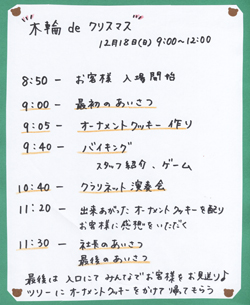 "木輪 de クリスマス"
12月18日(日) 9:00〜12:00
8:50 - お客様 入場開始
9:00 - 最初のあいさつ
9:05 - オーナメントクッキー作り
9:40 - バイキング
スタッフ紹介、ゲーム
10:40 - クラリネット演奏会
11:20 - 出来あがった オーナメントクッキーを配り
お客様に感想をいただく
11:30 - 社長のあいさつ
最後のあいさつ
最後は 入口にて みんなでお客様をお見送り♪
ツリーに オーナメントクッキーをかけて 帰ってもらう